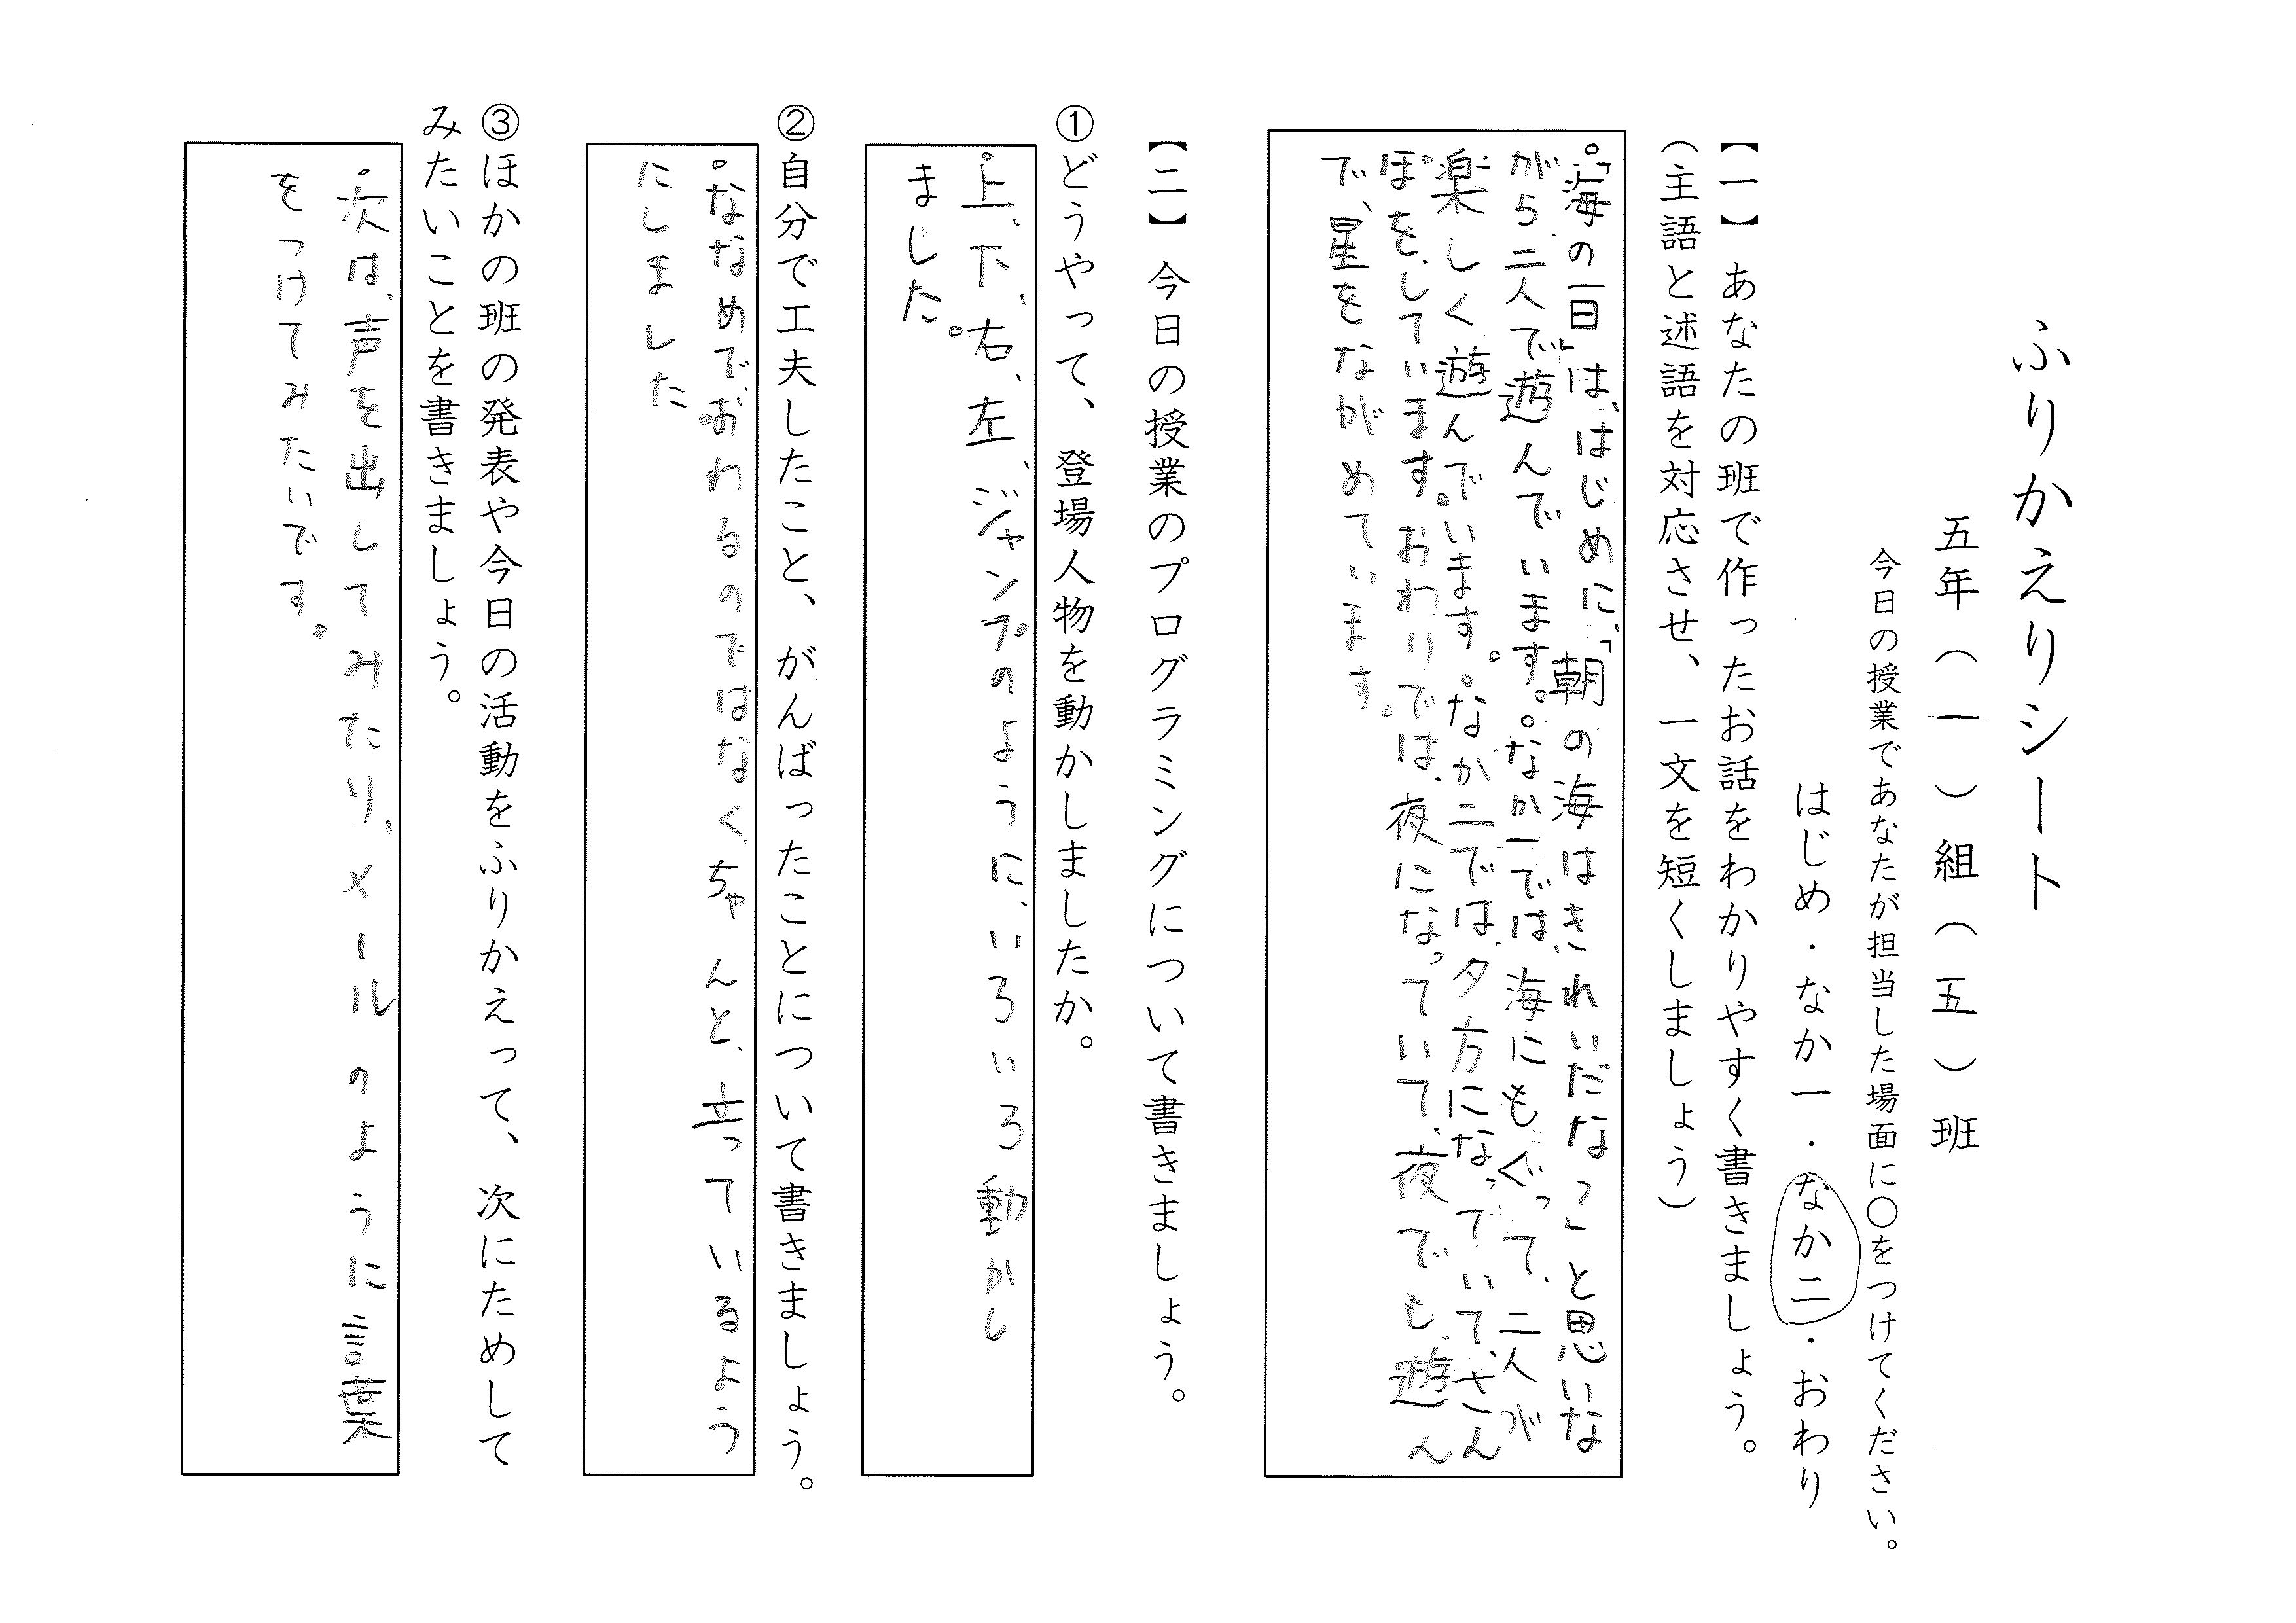 ふりかえりシート
五年（一）組（五）班
今日の授業であなたが担当した場面に○をつけてください。
はじめ・なか一・・なか二・おわり
【一】あなたの班で作ったお話をわかりやすく書きましょう。
（主語と述語を対応させ、一文を短くしましょう）
。「海の一日」は、はじめに、「朝の海はきれいだなっ」と思いな
がら、二人で遊んでいます。。なか一では、海にもぐって、二人が
楽しく遊んでいます。。なか二では、夕方になっていて、さん
ぽを、しています。。おわりでは、夜になっていて、夜でも、遊ん
で、星をながめています。
【二】今日の授業のプログラミングについて書きましょう。
①どうやって、登場人物を動かしましたか。
。上、下、右、左、ジャンプのように、いろいろ動かし
ました。
②自分で工夫したこと、がんばったことについて書きましょう。
。ななめで、おわるのではなく、ちゃんと、立っているよう
にしました。
③ほかの班の発表や今日の活動をふりかえって、次にためして
みたいことを書きましょう。
。次は、声を出してみたり、メールのように言葉
をつけてみたいです。